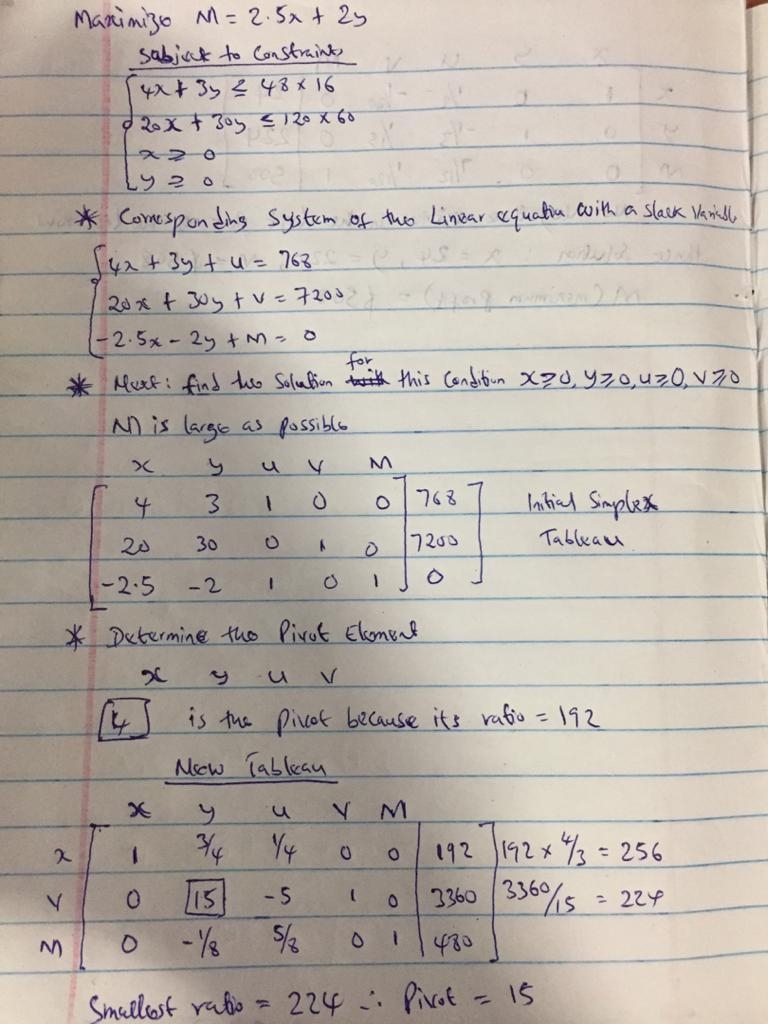 Maximize M = 2.5x + 2y
Subject to Constraints
4x + 3y ≤ 48 x 16
20x + 30y ≤ 120 x 60
x ≥ 0
y ≥ 0
* Corresponding System of the Linear equation with a slack Variable
4x + 3y + u = 768
20x + 30y + v = 7200
-2.5x - 2y + M = 0
* Next: find the Solution for this Condition x≥0, y≥0, u≥0, v≥0
M is large as possible
x y u v M
4 3 1 0 0 768 Initial Simplex
20 30 0 1 0 7200 Tableau
-2.5 -2 1 0 1 0
* Determine the Pivot Element
x y u v
4 is the pivot because its ratio = 192
New Tableau
x y u v M
x 1 3/4 1/4 0 0 192 192 x 4/3 = 256
v 0 15 -5 1 0 3360 3360/15 = 224
M 0 -1/8 5/8 0 1 480
Smallest ratio = 224 ∴ Pivot = 15